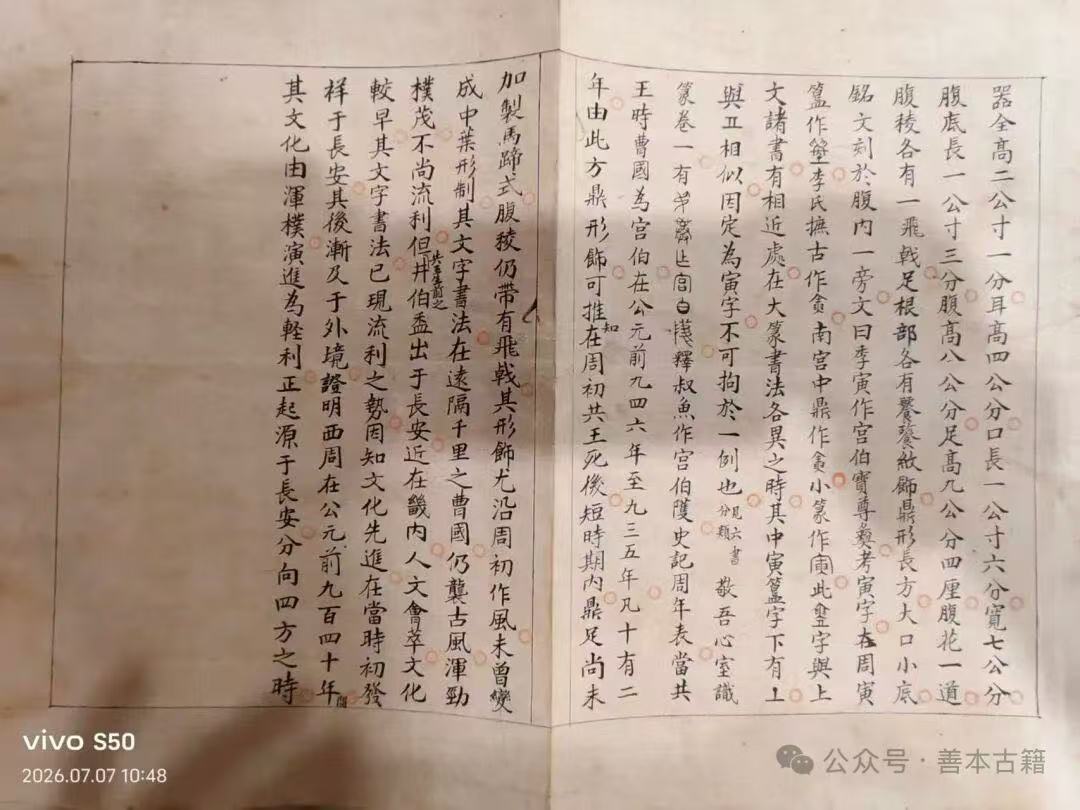 器全高二公寸一分耳高四公分口長一公寸六分寬七公分
腹底長一公寸三分腹高八公分足高九公分四厘腹花一道
腹稜各有一飛戟足根部各有饕餮紋飾鼎形長方大口小底
銘文刻於腹內一旁文曰季寅作宮伯寶尊彝考寅字在周寅
簠作 李氏摭古作 南宮中鼎作 小篆作 此 字與上
文諸書有相近處在大篆書法各異之時其中寅簠字下有丄
與丑相似因定為寅字不可拘於一例也見六書分類 敬吾心室識
篆卷一有 釋叔魚作宮伯䕶史記周年表當共
王時曹國為宮伯在公元前九四六年至九三五年凡十有二
年由此方鼎形飾可推知在周初共王死後短時期內鼎足尚未
加製馬蹄式腹稜仍帶有飛戟其形飾尤沿周初作風未曾變
成中葉形制其文字書法在遠隔千里之曹國仍襲古風渾勁
樸茂不尚流利但共王生前之井伯盉出于長安近在畿內人文會萃文化
較早其文字書法已現流利之勢因知文化先進在當時初發
祥于長安其後漸及于外境證明西周在公元前九百四十年間
其文化由渾樸演進為輕利正起源于長安分向四方之時
vivo S50
2026.07.07 10:48
公众号·善本古籍